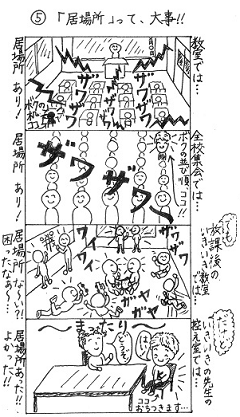 ⑤ 「居場所」って、大事!!
教室では…
ザワ
ザワ
ザワ
ザワ
ボクの
ココ
居場所 あり!
全校集会では…
ボクの並び順、ココ!!
ザワ
ザワ
居場所 あり!
放課後の
いきいき教室
では…
ザワ
ザワ
ワイ
ワイ
ガヤ
ガヤ
居場所 な〜い?!
困ったなぁ〜…
いきいきの先生の
控え室では…
まったり〜
どうぞ
ココ
おちつきます…
居場所あった!!
よかった!!